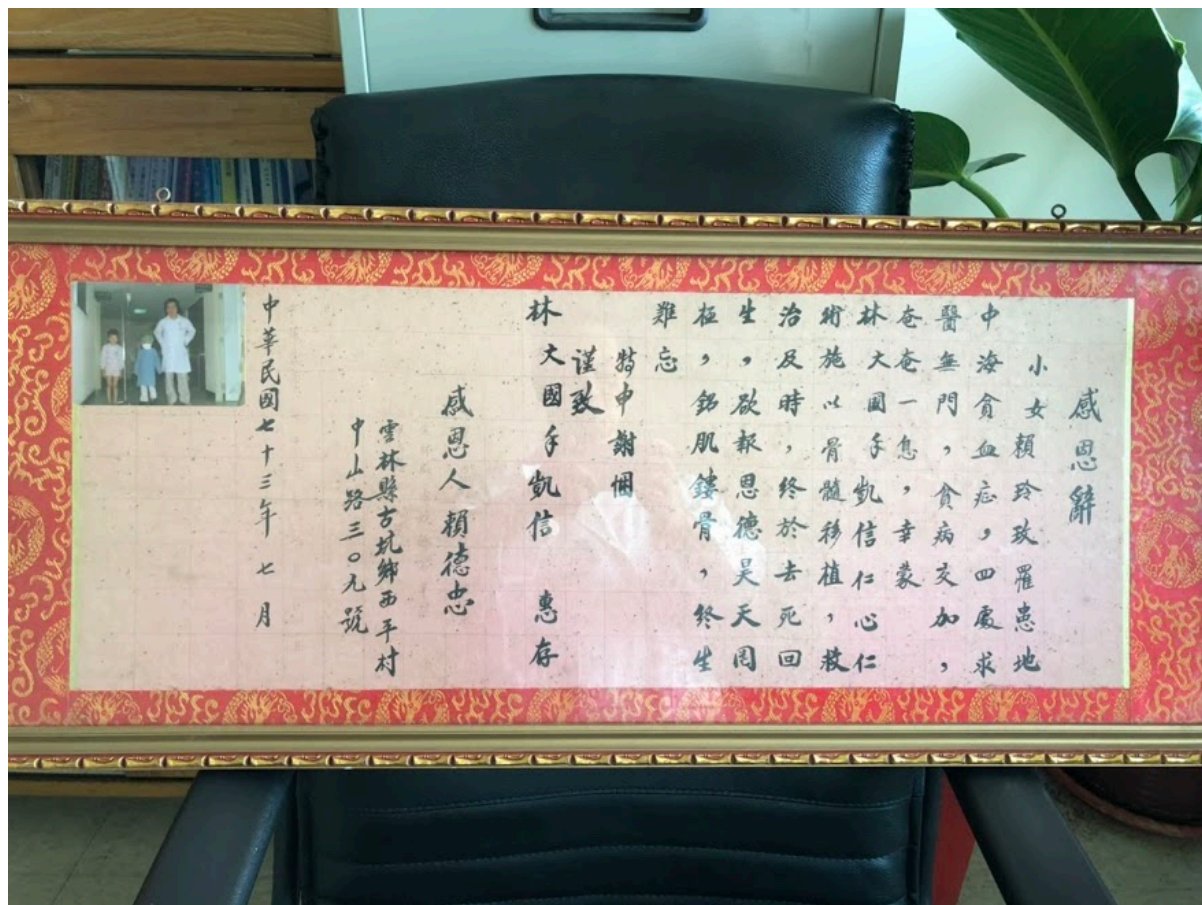 感恩辭
小女賴玲玫罹患地
中海貧血症，四處求
醫無門，貧病交加，
奄奄一息，幸蒙
林大國手凱信仁心仁
術施以骨髓移植，救
治及時，終於去死回
生，欲報恩德昊天罔
極，銘肌鏤骨，終生
難忘
特申謝悃
謹致
林大國手凱信　惠存
感恩人賴德忠
雲林縣古坑鄉西平村
中山路三〇九號
中華民國七十三年七月